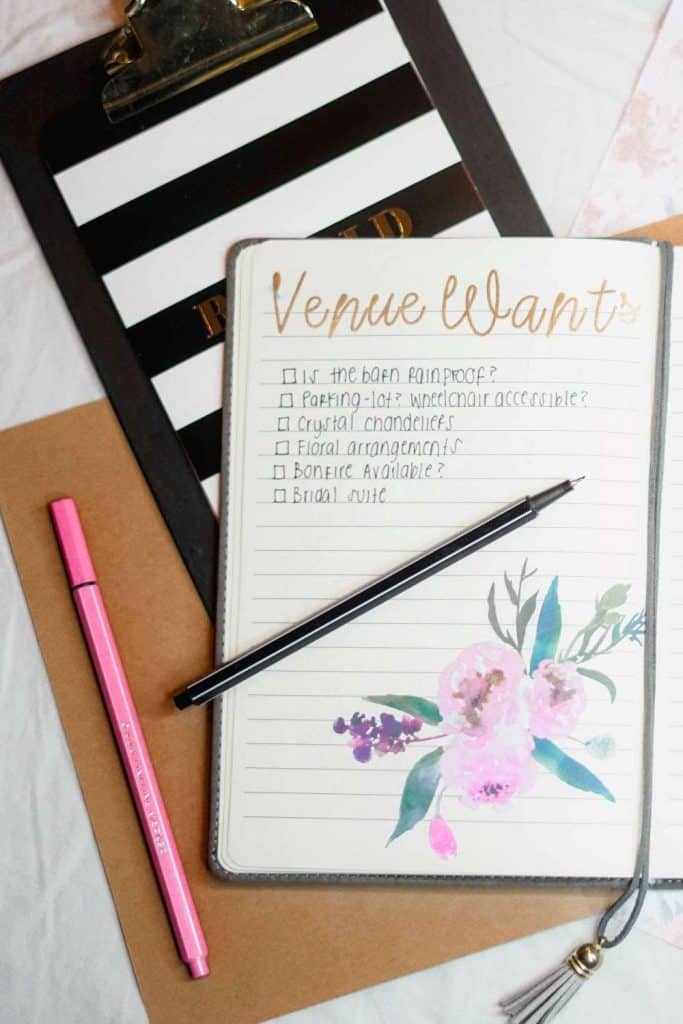 Venue Wants
Is the barn rainproof?
Parking-lot? Wheelchair accessible?
Crystal chandeliers
Floral arrangements
Bonfire Available?
Bridal suite